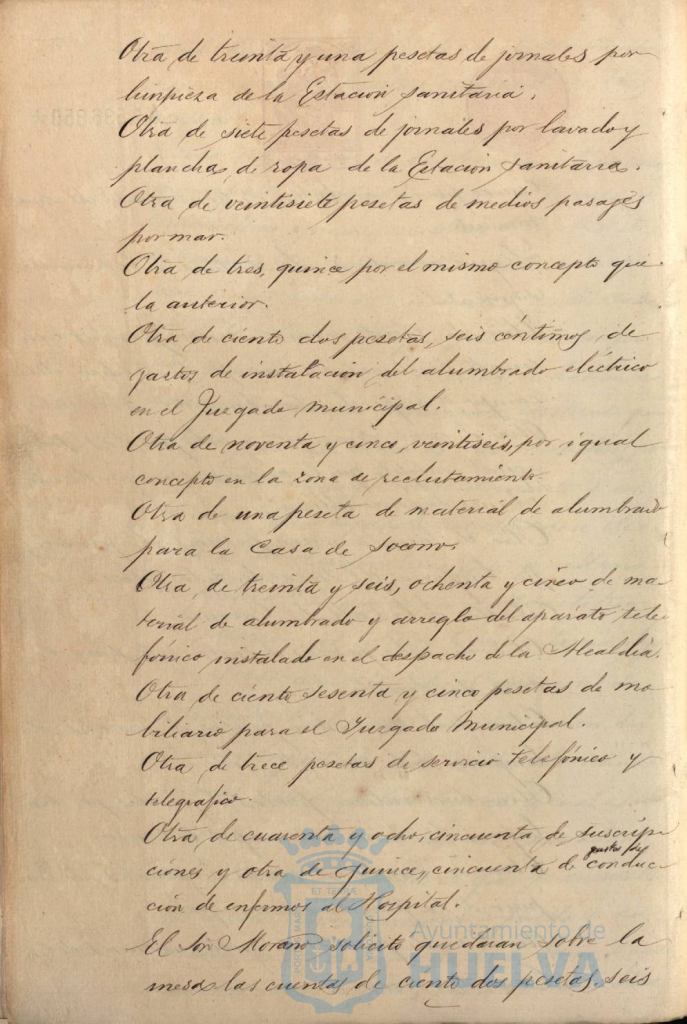 Otra de treinta y una pesetas de jornales por
limpieza de la Estacion sanitaria.
Otra de siete pesetas de jornales por lavado y
plancha de ropa de la Estacion sanitaria.
Otra de veintisiete pesetas de medios pasages
por mar.
Otra de tres, quince por el mismo concepto que
la anterior.
Otra de ciento dos pesetas, seis céntimos, de
gastos de instalacion del alumbrado eléctrico
en el Juzgado municipal.
Otra de noventa y cinco, veintiseis, por igual
concepto en la zona de reclutamiento.
Otra de una peseta de material de alumbrado
para la Casa de Socorro.
Otra de treinta y seis, ochenta y cinco de ma-
terial de alumbrado y arreglo del aparato tele
fónico instalado en el despacho de la Alcaldía.
Otra de ciento sesenta y cinco pesetas de mo
biliario para el Juzgado Municipal.
Otra de trece pesetas de servicio telefónico y
telegrafico.
Otra de cuarenta y ocho, cincuenta de suscrip-
gastos de
ciones y otra de quince, cincuenta de conduc-
cion de enfermos al Hospital.
El Sor. Morano solicitó quedaran sobre la
mesa las cuentas de ciento dos pesetas, seis
Ayuntamiento de
HUELVA